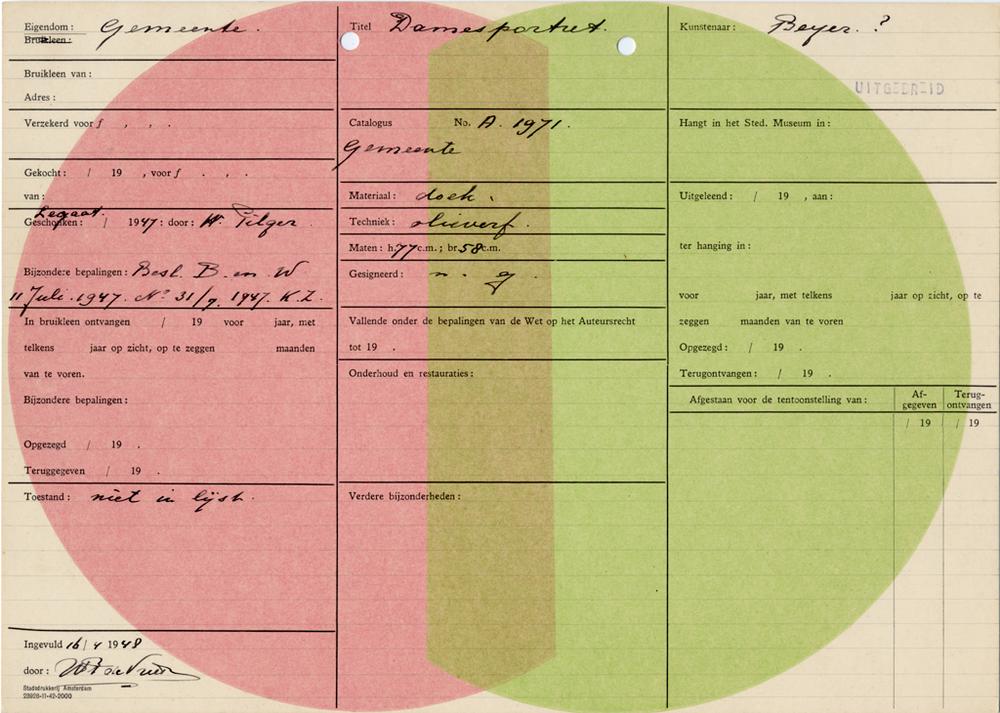 Eigendom: Gemeente.
Bruikleen:
Bruikleen van:
Adres:
Verzekerd voor f , , .
Gekocht: / 19 , voor f . , .
van:
Legaat.
Geschonken: / 1947: door: W. Pilger
Bijzondere bepalingen: Besl. B. en W
11 Juli. 1947. No 31/7. 1947. K.Z.
In bruikleen ontvangen / 19 voor jaar, met
telkens jaar op zicht, op te zeggen maanden
van te voren.
Bijzondere bepalingen:
Opgezegd / 19 .
Teruggegeven / 19 .
Toestand: niet in lijst.
Ingevuld 16/4 1948
door:
Stadsdrukkerij Amsterdam
23928-11-42-2000
Titel Damesportret.
Catalogus No. A. 1971.
Gemeente
Materiaal: doek.
Techniek: olieverf.
Maten: h. 77 c.m.; br. 58 c.m.
Gesigneerd: n. g.
Vallende onder de bepalingen van de Wet op het Auteursrecht
tot 19 .
Onderhoud en restauraties:
Verdere bijzonderheden:
Kunstenaar: Beyer. ?
UITGEBREID
Hangt in het Sted. Museum in:
Uitgeleend: / 19 , aan:
ter hanging in:
voor jaar, met telkens jaar op zicht, op te
zeggen maanden van te voren
Opgezegd: / 19 .
Terugontvangen: / 19 .
Afgestaan voor de tentoonstelling van:
Af-
gegeven
Terug-
ontvangen
/ 19
/ 19